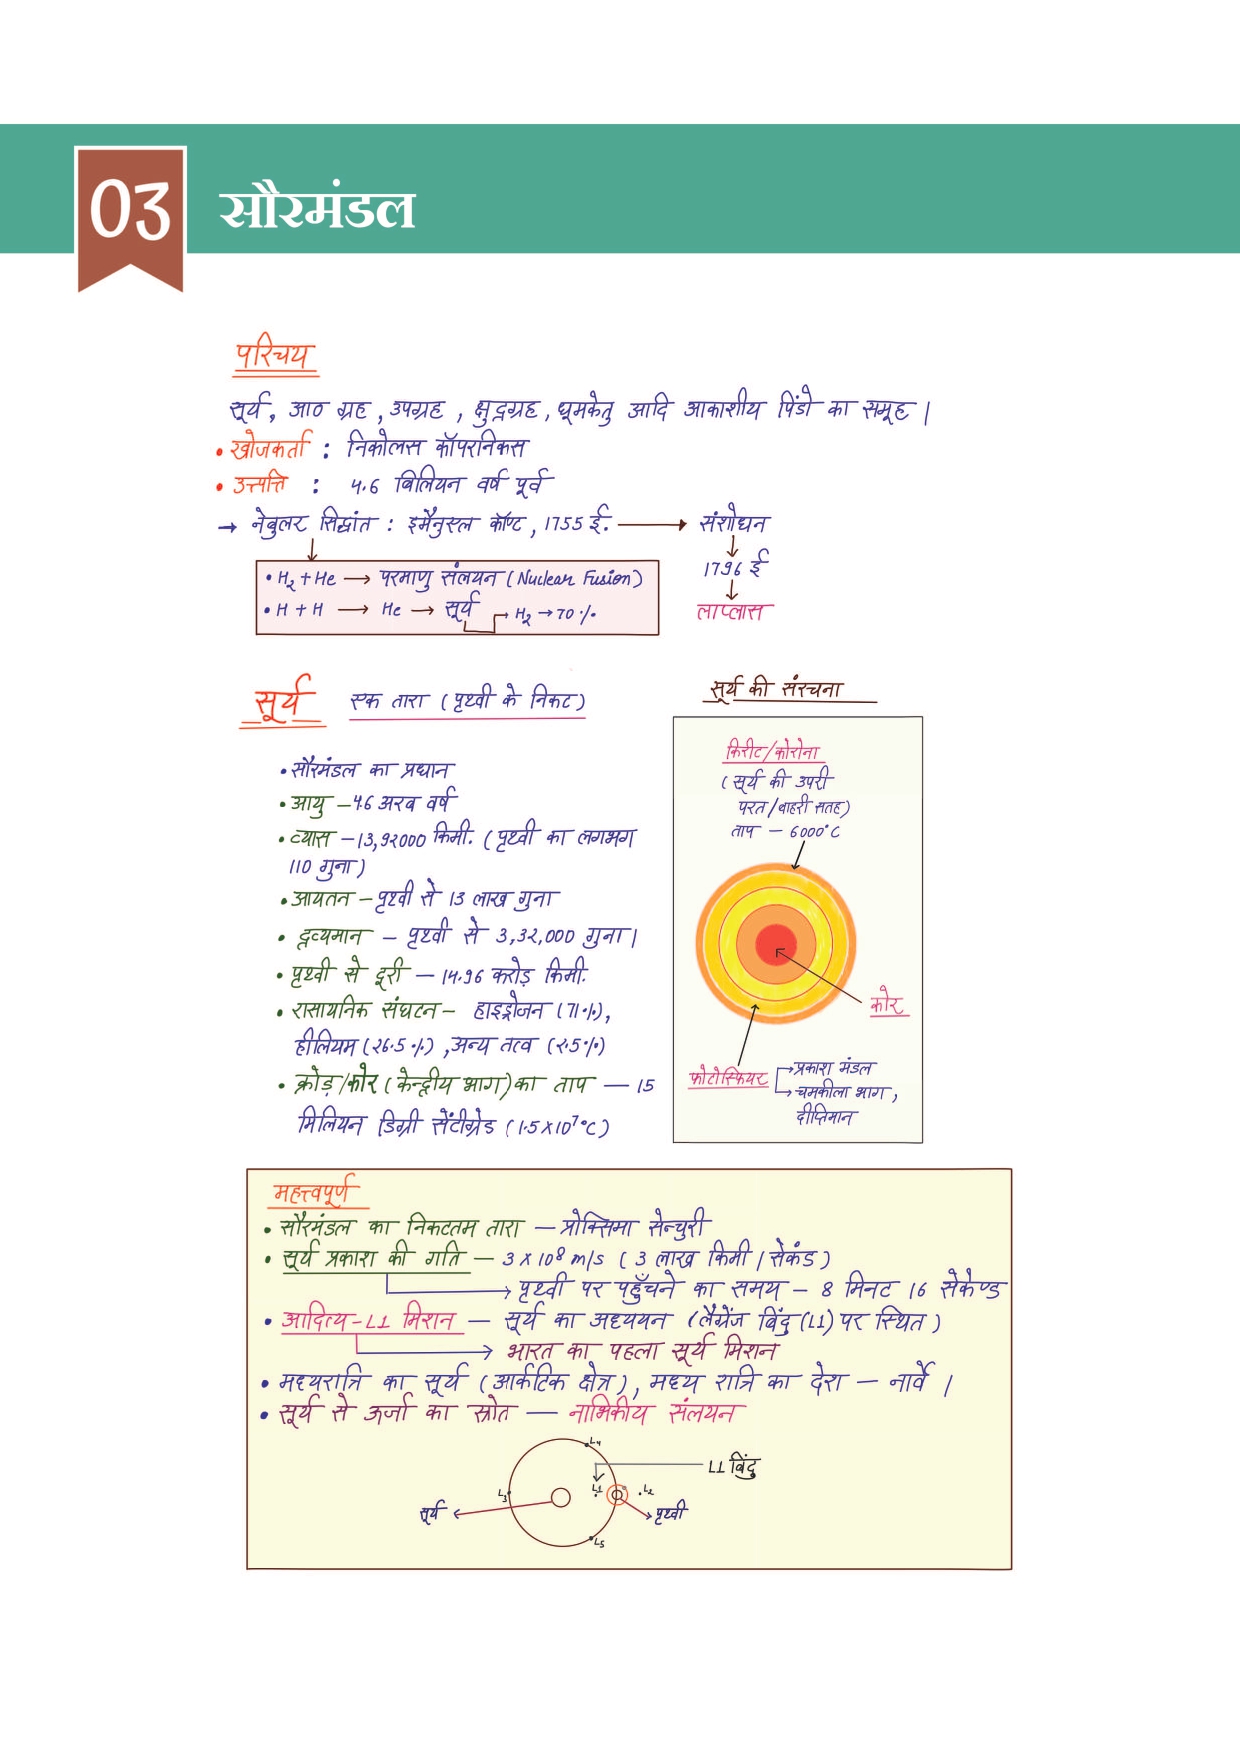 03 सौरमंडल
परिचय
सूर्य, आठ ग्रह, उपग्रह, क्षुद्रग्रह, धूमकेतु आदि आकाशीय पिंडो का समूह |
• खोजकर्ता : निकोलस कॉपरनिकस
• उत्पत्ति : 4.6 बिलियन वर्ष पूर्व
→ नेबुलर सिद्धांत : इमैनुएल कॉण्ट, 1755 ई. → संशोधन
1796 ई
लाप्लास
• H₂ + He → परमाणु संलयन (Nuclear Fusion)
• H + H → He → सूर्य → H₂ → 70%
सूर्य एक तारा (पृथ्वी के निकट)
• सौरमंडल का प्रधान
• आयु – 4.6 अरब वर्ष
• व्यास – 13,92000 किमी. (पृथ्वी का लगभग
110 गुना)
• आयतन – पृथ्वी से 13 लाख गुना
• द्रव्यमान – पृथ्वी से 3,32,000 गुना |
• पृथ्वी से दूरी – 14.96 करोड़ किमी.
• रासायनिक संघटन – हाइड्रोजन (71%),
हीलियम (26.5%), अन्य तत्व (2.5%)
• क्रोड़/कोर (केन्द्रीय भाग) का ताप – 15
मिलियन डिग्री सेंटीग्रेड (1.5 X 10⁷ °C)
सूर्य की संरचना
किरीट/कोरोना
(सूर्य की उपरी
परत/बाहरी सतह)
ताप – 6000°C
कोर
फोटोस्फियर → प्रकाश मंडल
→ चमकीला भाग,
दीप्तिमान
महत्त्वपूर्ण
• सौरमंडल का निकटतम तारा – प्रोक्सिमा सेन्चुरी
• सूर्य प्रकाश की गति – 3 x 10⁸ m/s (3 लाख किमी / सेकंड)
→ पृथ्वी पर पहुँचने का समय – 8 मिनट 16 सेकेण्ड
• आदित्य-L1 मिशन – सूर्य का अध्ययन (लैग्रेंज बिंदु (L1) पर स्थित)
→ भारत का पहला सूर्य मिशन
• मध्यरात्रि का सूर्य (आर्कटिक क्षेत्र), मध्य रात्रि का देश – नार्वे |
• सूर्य से ऊर्जा का स्रोत – नाभिकीय संलयन
L4
L1 बिंदु
L3 L1 L2
सूर्य पृथ्वी
L5